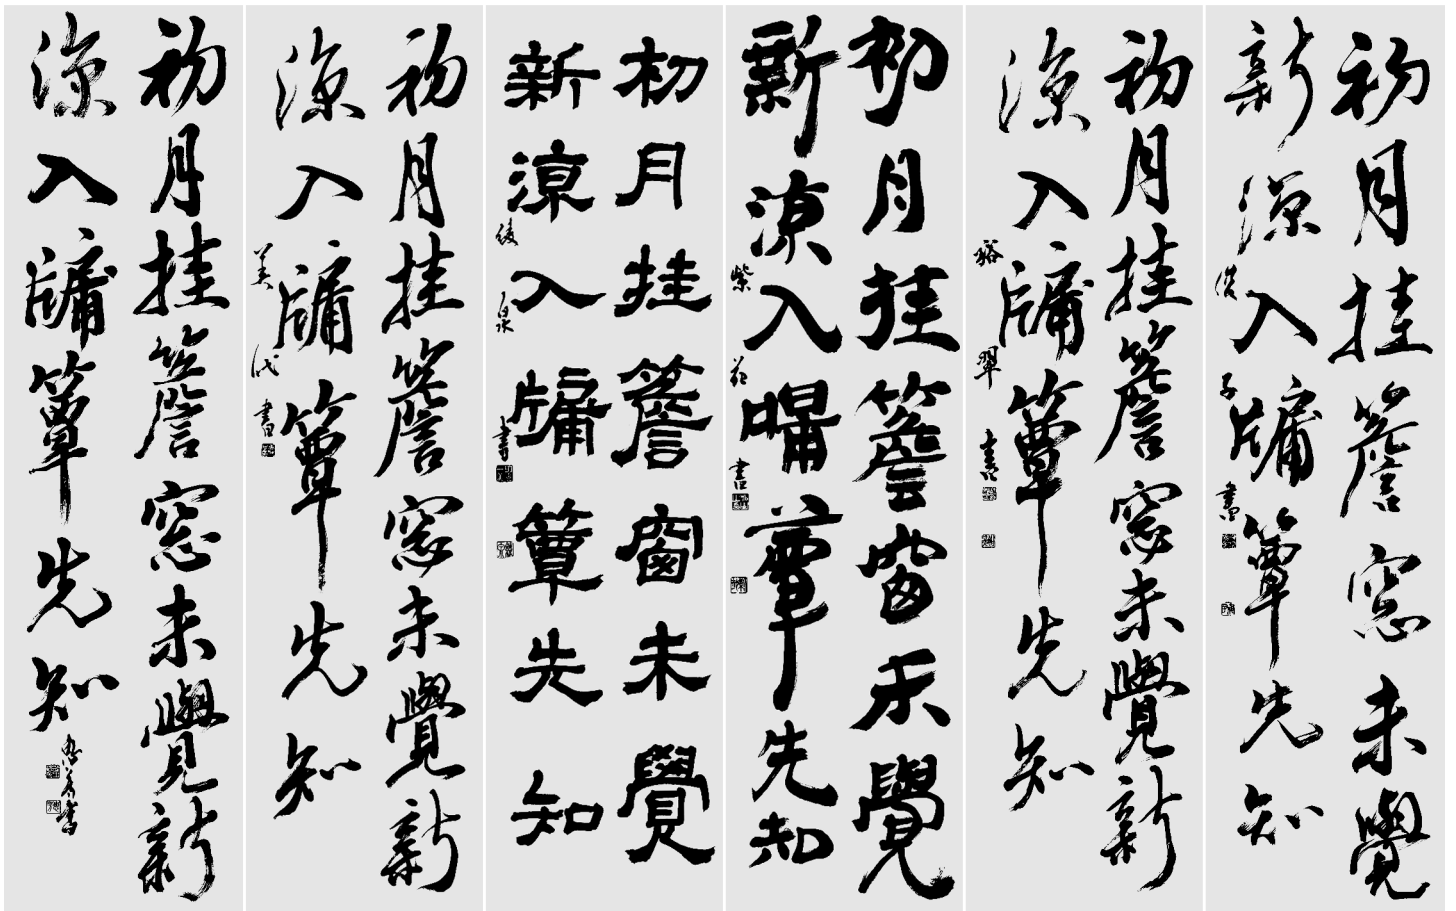 初月挂簷窓未覺
新涼入牖簟先知
子書
初月挂簷窓未覺新
涼入牖簟先知
裕翠書
初月挂簷窗未覺
新涼入牖簟先知
紫書
初月挂簷窗未覺
新涼入牖簟先知
泉書
初月挂簷窓未覺新
涼入牖簟先知
美代書
初月挂簷窓未覺新
涼入牖簟先知
書